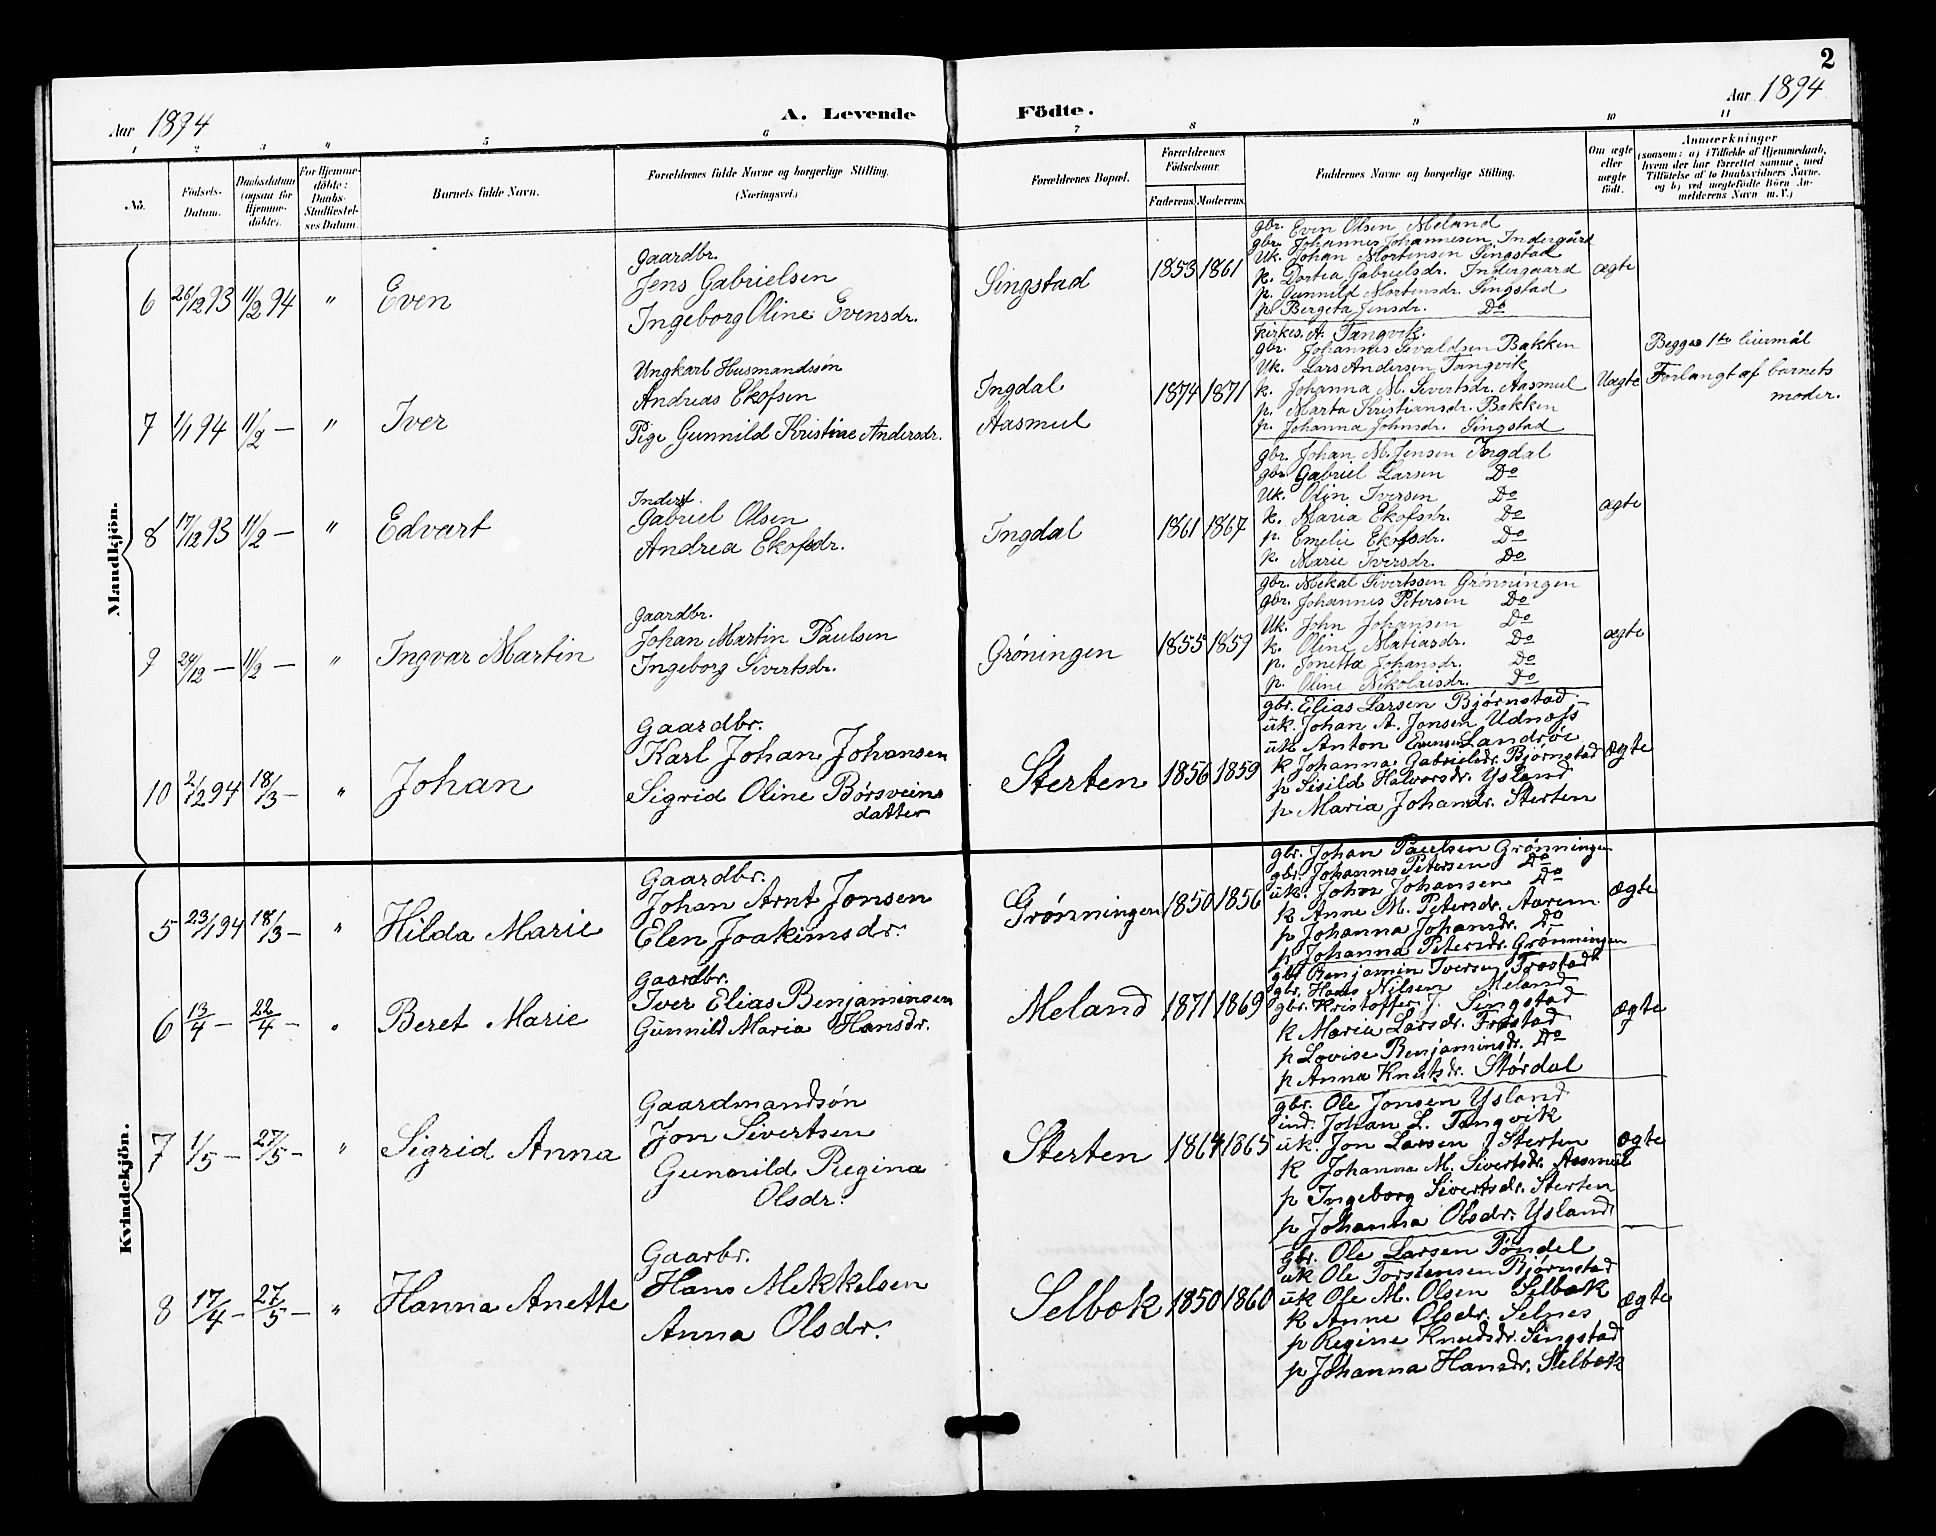 2
Aar 1894
A. Levende Födte.
Aar 1894
1 2 3 4 5 6 7 8 9 10 11
No.
Födsels-Datum.
Daabsdatum (ogsaa for Hjemmedöbte).
For Hjemmedöbte: Daabs-Stadfæstelses Datum.
Barnets fulde Navn.
Forældrenes fulde Navne og borgerlige Stilling.
(Næringsvei.)
Forældrenes Bopæl.
Forældrenes Födselsaar.
Faderens. Moderens.
Faddernes Navne og borgerlige Stilling.
Om ægte eller uægte födt.
Anmærkninger
(saasom: a) i Tilfælde af Hjemmedaab, hvem der har forrettet samme, med Tilföielse af to Daabsvidners Navne. og b) ved uægtefödte Börn Anmelderens Navn m. V.)
Mandkjön.
6 26/12 93 11/2 94 " Even
Gaardbr.
Jens Gabrielsen
Ingeborg Oline Evensdr.
Singstad 1853 1861
gbr. Even Olsen Meland
gbr. Johannes Johannesen Indergård
Uk. Johan Mortensen Singstad
k. Dortea Gabrielsdr. Indergaard
p. Gunnild Mortensdr. Singstad
p. Bergeta Jensdr. Do
ægte
7 1/1 94 11/2 — " Iver
Ungkarl Husmandssön
Andreas Ekofsen
Pige Gunnild Kristine Andersdr.
Ingdal
Aasmul
1874 1871
Kirkes. A. Tangvik.
gbr. Johannes Sivaldsen Bakken
Uk. Lars Andersen Tangvik
k. Johanna M. Sivertsdr. Aasmul
p. Marta Kristiansdr. Bakken
p. Johanna Johnsdr. Singstad
Uægte
Begges 1ste leiermål
Forlangt af barnets
moder.
8 17/12 93 11/2 — " Edvart
Inderst.
Gabriel Olsen
Andrea Ekofsdr.
Ingdal 1861 1867
gbr. Johan M. Jensen Ingdal
gbr Gabriel Larsen Do
Uk. Odin Iversen Do
k. Maria Ekofsdr. Do
p. Emelie Ekofsdr. Do
p. Marie Iversdr. Do
ægte
9 29/12 — 11/2 — " Ingvar Martin
Gaardbr.
Johan Martin Paulsen
Ingeborg Sivertsdr.
Gröningen 1855 1859
gbr. Mekal Sivertssen Grönningen
gbr. Johannes Petersen Do
Uk. John Johansen Do
k. Oline Matiasdr. Do
p. Jonetta Johansdr. Do
p. Oline Nikolaisdr. Do
ægte
10 2/12 94 18/3 — " Johan
Gaardbr.
Karl Johan Johansen
Sigrid Oline Börsveins
datter
Sterten 1856 1859
gbr. Elias Larsen Björnstad
ük. Johan A. Jonsen Udnæss
ük Anton Evensen Landröe
k Johanna Gabrielsdr. Björnstad
p Sisild Halvorsdr. Ysland
p Maria Johandr. Sterten
Ægte
Kvindekjön.
5 23/1 94 18/3 — " Hilda Marie
Gaardbr.
Johan Arnt Jonsen
Elen Joakimsdr.
Grönningen 1850 1856
gbr. Johan Paulsen Grönningen
gbr. Johannes Petersen Do
ük. John Johansen Do
k Anne M. Petersdr. Aarem
p Johanna Johansdr. Do
p Johanna Petersdr. Grönningen
ægte
6 13/4 — 22/4 — " Beret Marie
Gaardbr.
Iver Elias Benjaminsen
Gunnild Maria Hansdr.
Meland 1871 1869
gbr Benjamin Iversen Frostad
gbr. Hans Nilsen Meland
gbr. Kristoffer J. Singstad
k Maria Larsdr. Frostad
p Lovise Benjaminsdr. Do
p Anna Knutsdr. Stördal
ægte
7 1/5 — 27/5 — " Sigrid Anna
Gaardmandsön
Jon Sivertsen
Gunnild Regina
Olsdr.
Sterten 1864 1865
gbr. Ole Jonsen Ysland
ind. Johan L. Tangvik
ük Jon Larsen Sterten
k Johanna M. Sivertsdr. Aasmul
p Ingeborg Sivertsdr. Sterten
p Johanna Olsdr. Ysland
ægte
8 17/4 — 27/5 — " Hanna Anette
Gaarbr.
Hans Mekkelsen
Anna Olsdr.
Selbek 1850 1860
gbr. Ole Larsen Töndel
ük Ole Torstensen Björnstad
ük Ole M. Olsen Selbæk
k Anne Olsdr. Selnes
p Regine Knudsdr. Singstad
p Johanna Hansdr. Selbæk
ægte